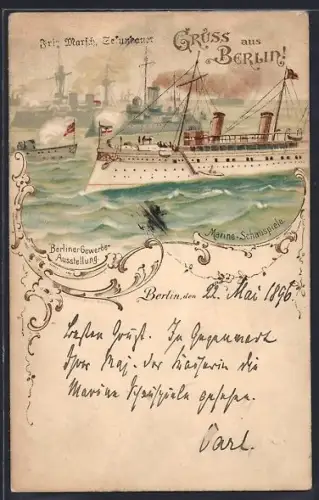 Fritz Marsch, Sekundaner
GRUSS aus
BERLIN!
Berliner Gewerbe-
Ausstellung.
Marine-Schauspiele.
Berlin, den 22. Mai 1896.
Besten Gruß. In Gegenwart
Ihrer Maj. der Kaiserin die
Marine Schauspiele gesehen.
Carl.